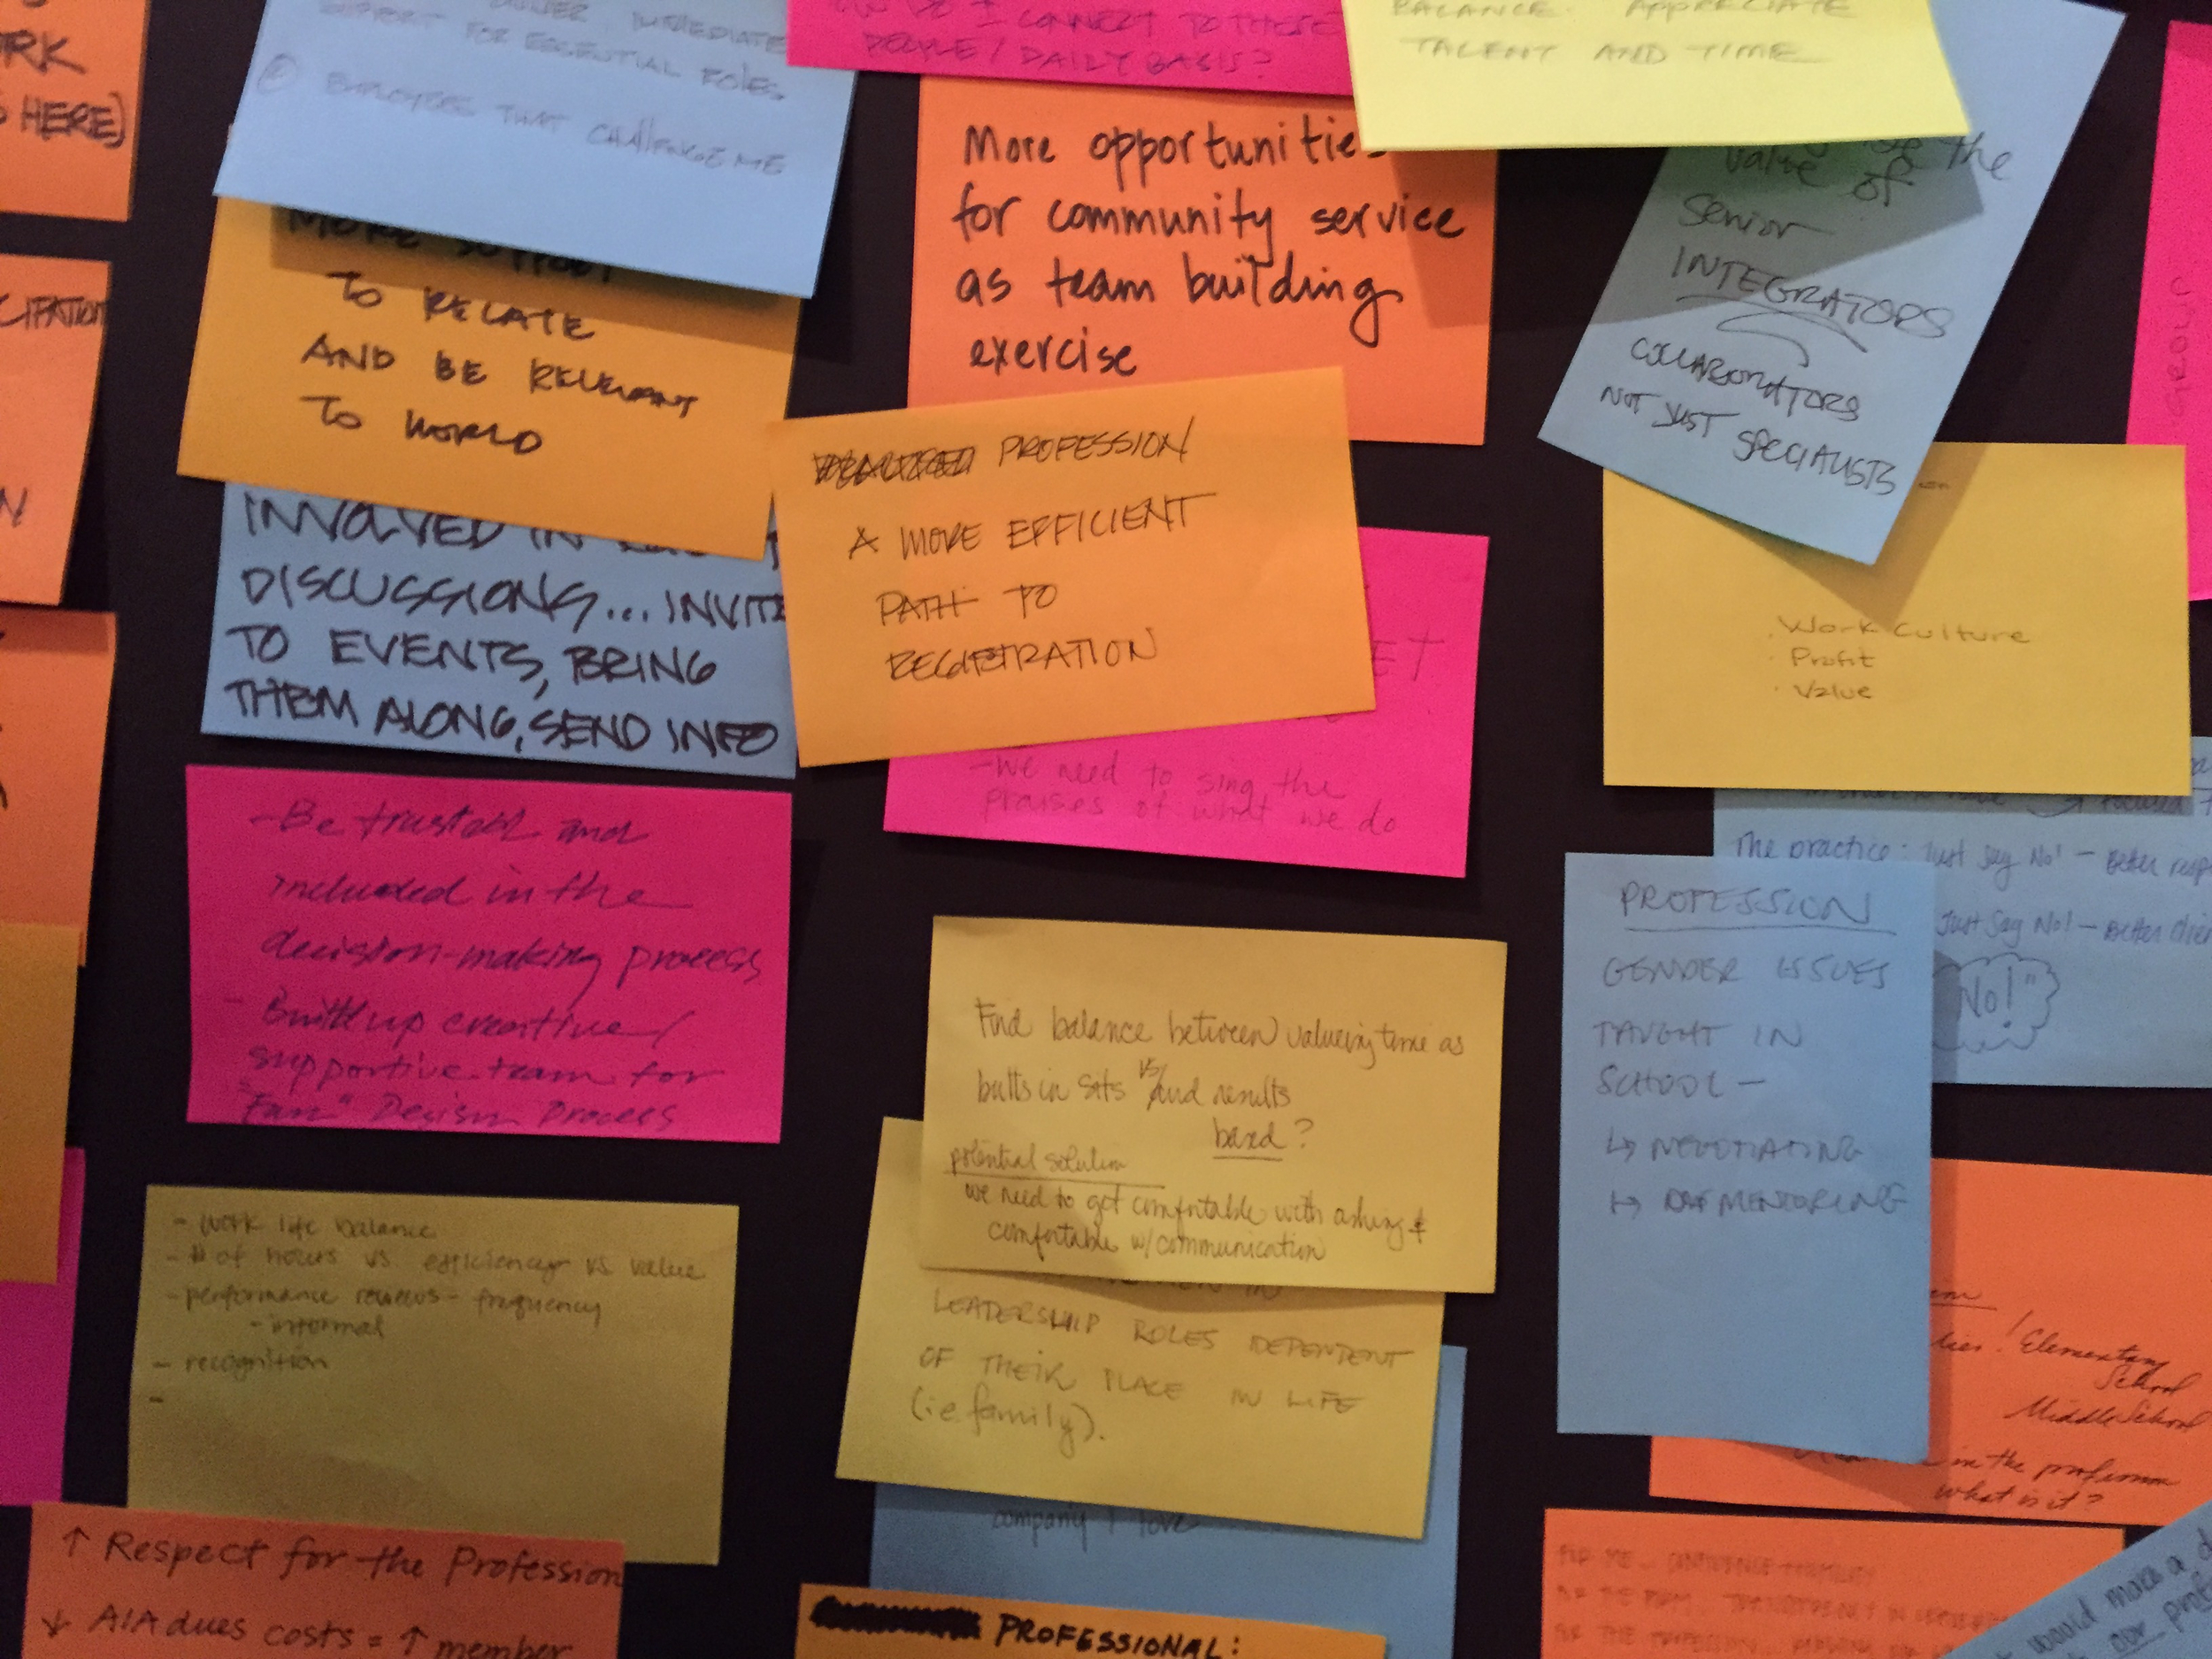 RK
HERE)
IMMEDIATE
SUPPORT FOR ESSENTIAL ROLES
② EMPLOYEES THAT CHALLENGE ME
MORE SUPPORT
TO RELATE
AND BE RELEVANT
TO WORLD
INVOLVED IN
DISCUSSIONS... INVITE
TO EVENTS, BRING
THEM ALONG, SEND INFO
- Be trusted and
included in the
decision-making process
- Build up creative/
supportive team for
Design Process
- work life balance
- # of hours vs efficiency vs value
- performance reviews - frequency
- informal
- recognition
-
↑ Respect for the Profession
↓ AIA dues costs = ↑ member
DO I CONNECT TO THESE
PEOPLE / DAILY BASIS?
More opportunities
for community service
as team building
exercise
PROFESSION
A MORE EFFICIENT
PATH TO
REGISTRATION
ET
- We need to sing the
praises of what we do
Find balance between valuing time as
butts in sits vs and results
based?
potential solution
we need to get comfortable with asking &
comfortable w/ communication
LEADERSHIP ROLES DEPENDENT
OF THEIR PLACE IN LIFE
(ie family).
company I love
PROFESSIONAL:
BALANCE. APPRECIATE
TALENT AND TIME
the
value of
Senior
INTEGRATORS
COLLABORATORS
NOT JUST SPECIALISTS
GROUP
. Work Culture
. Profit
. Value
The practice: Just Say No! - Better
Just Say No! - Better
No!"
PROFESSION
GENDER ISSUES
TAUGHT IN
SCHOOL -
↳ NEGOTIATING
↳ MENTORING
! Elementary
School
Middle School
in the profession
what is it?
would make a
our